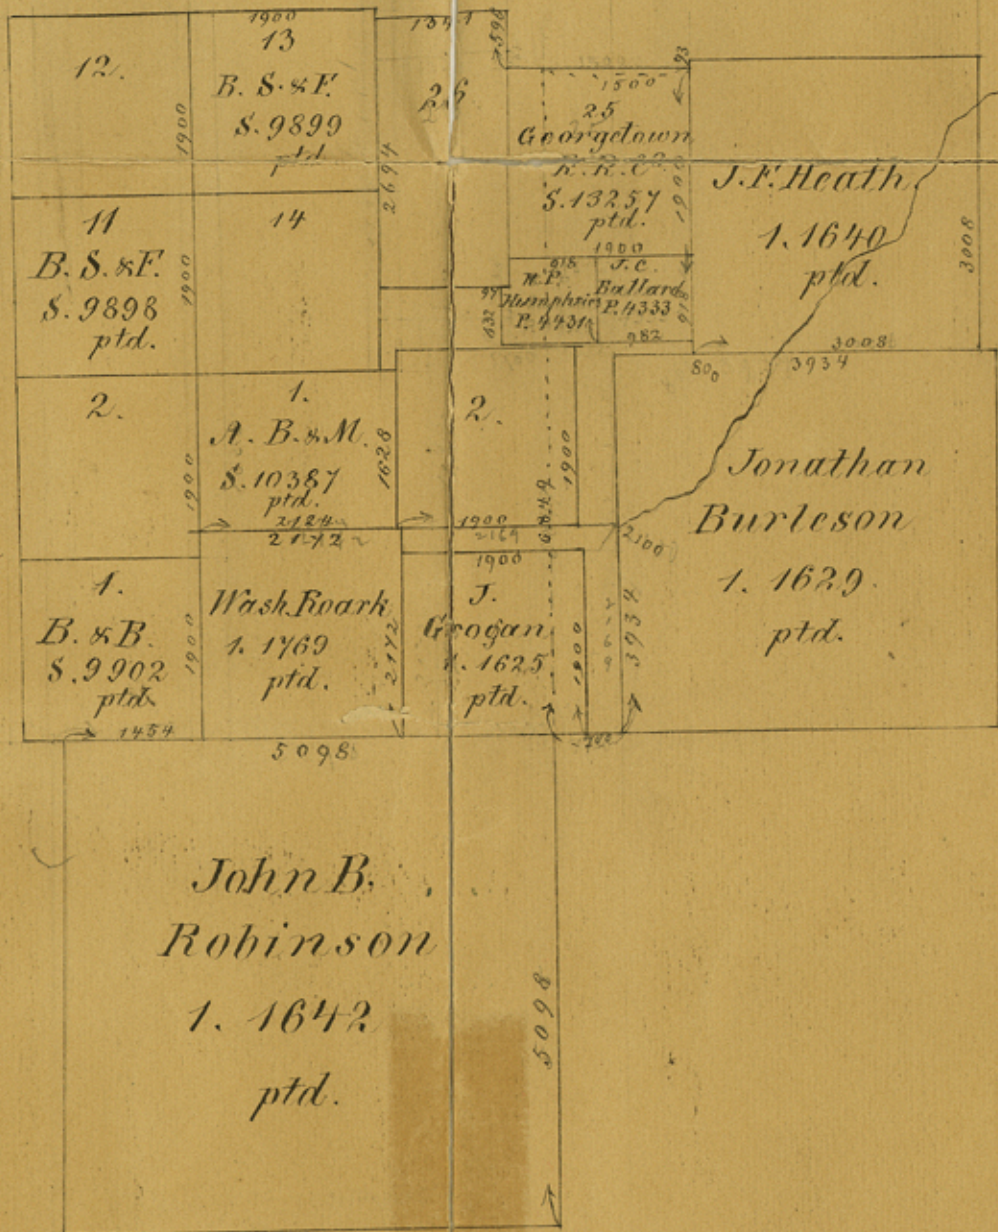 1900
1341
598
93
12.
13
B. S. & F.
S. 9899
ptd.
1900
26
2694
1500
25
Georgetown
R. R. Co.
S. 13257
ptd.
1900
1900
J. F. Heath
1. 1640
ptd.
3008
3008
11
B. S. & F.
S. 9898
ptd.
1900
14
918
W. P.
Humphries
P. 4431
632
J. C.
Ballard
P. 4333
918
982
800
3934
2.
1900
1.
A. B. & M.
S. 10387
ptd.
1628
2124
2172
2.
1900
1900
2164
6842
2100
Jonathan
Burleson
1. 1629.
ptd.
3934
1.
B. & B.
S. 9902
ptd.
1900
1454
Wash Roark
1. 1769
ptd.
2172
1900
J.
Grogan
1. 1625
ptd.
1900
5098
John B.
Robinson
1. 1642
ptd.
5098